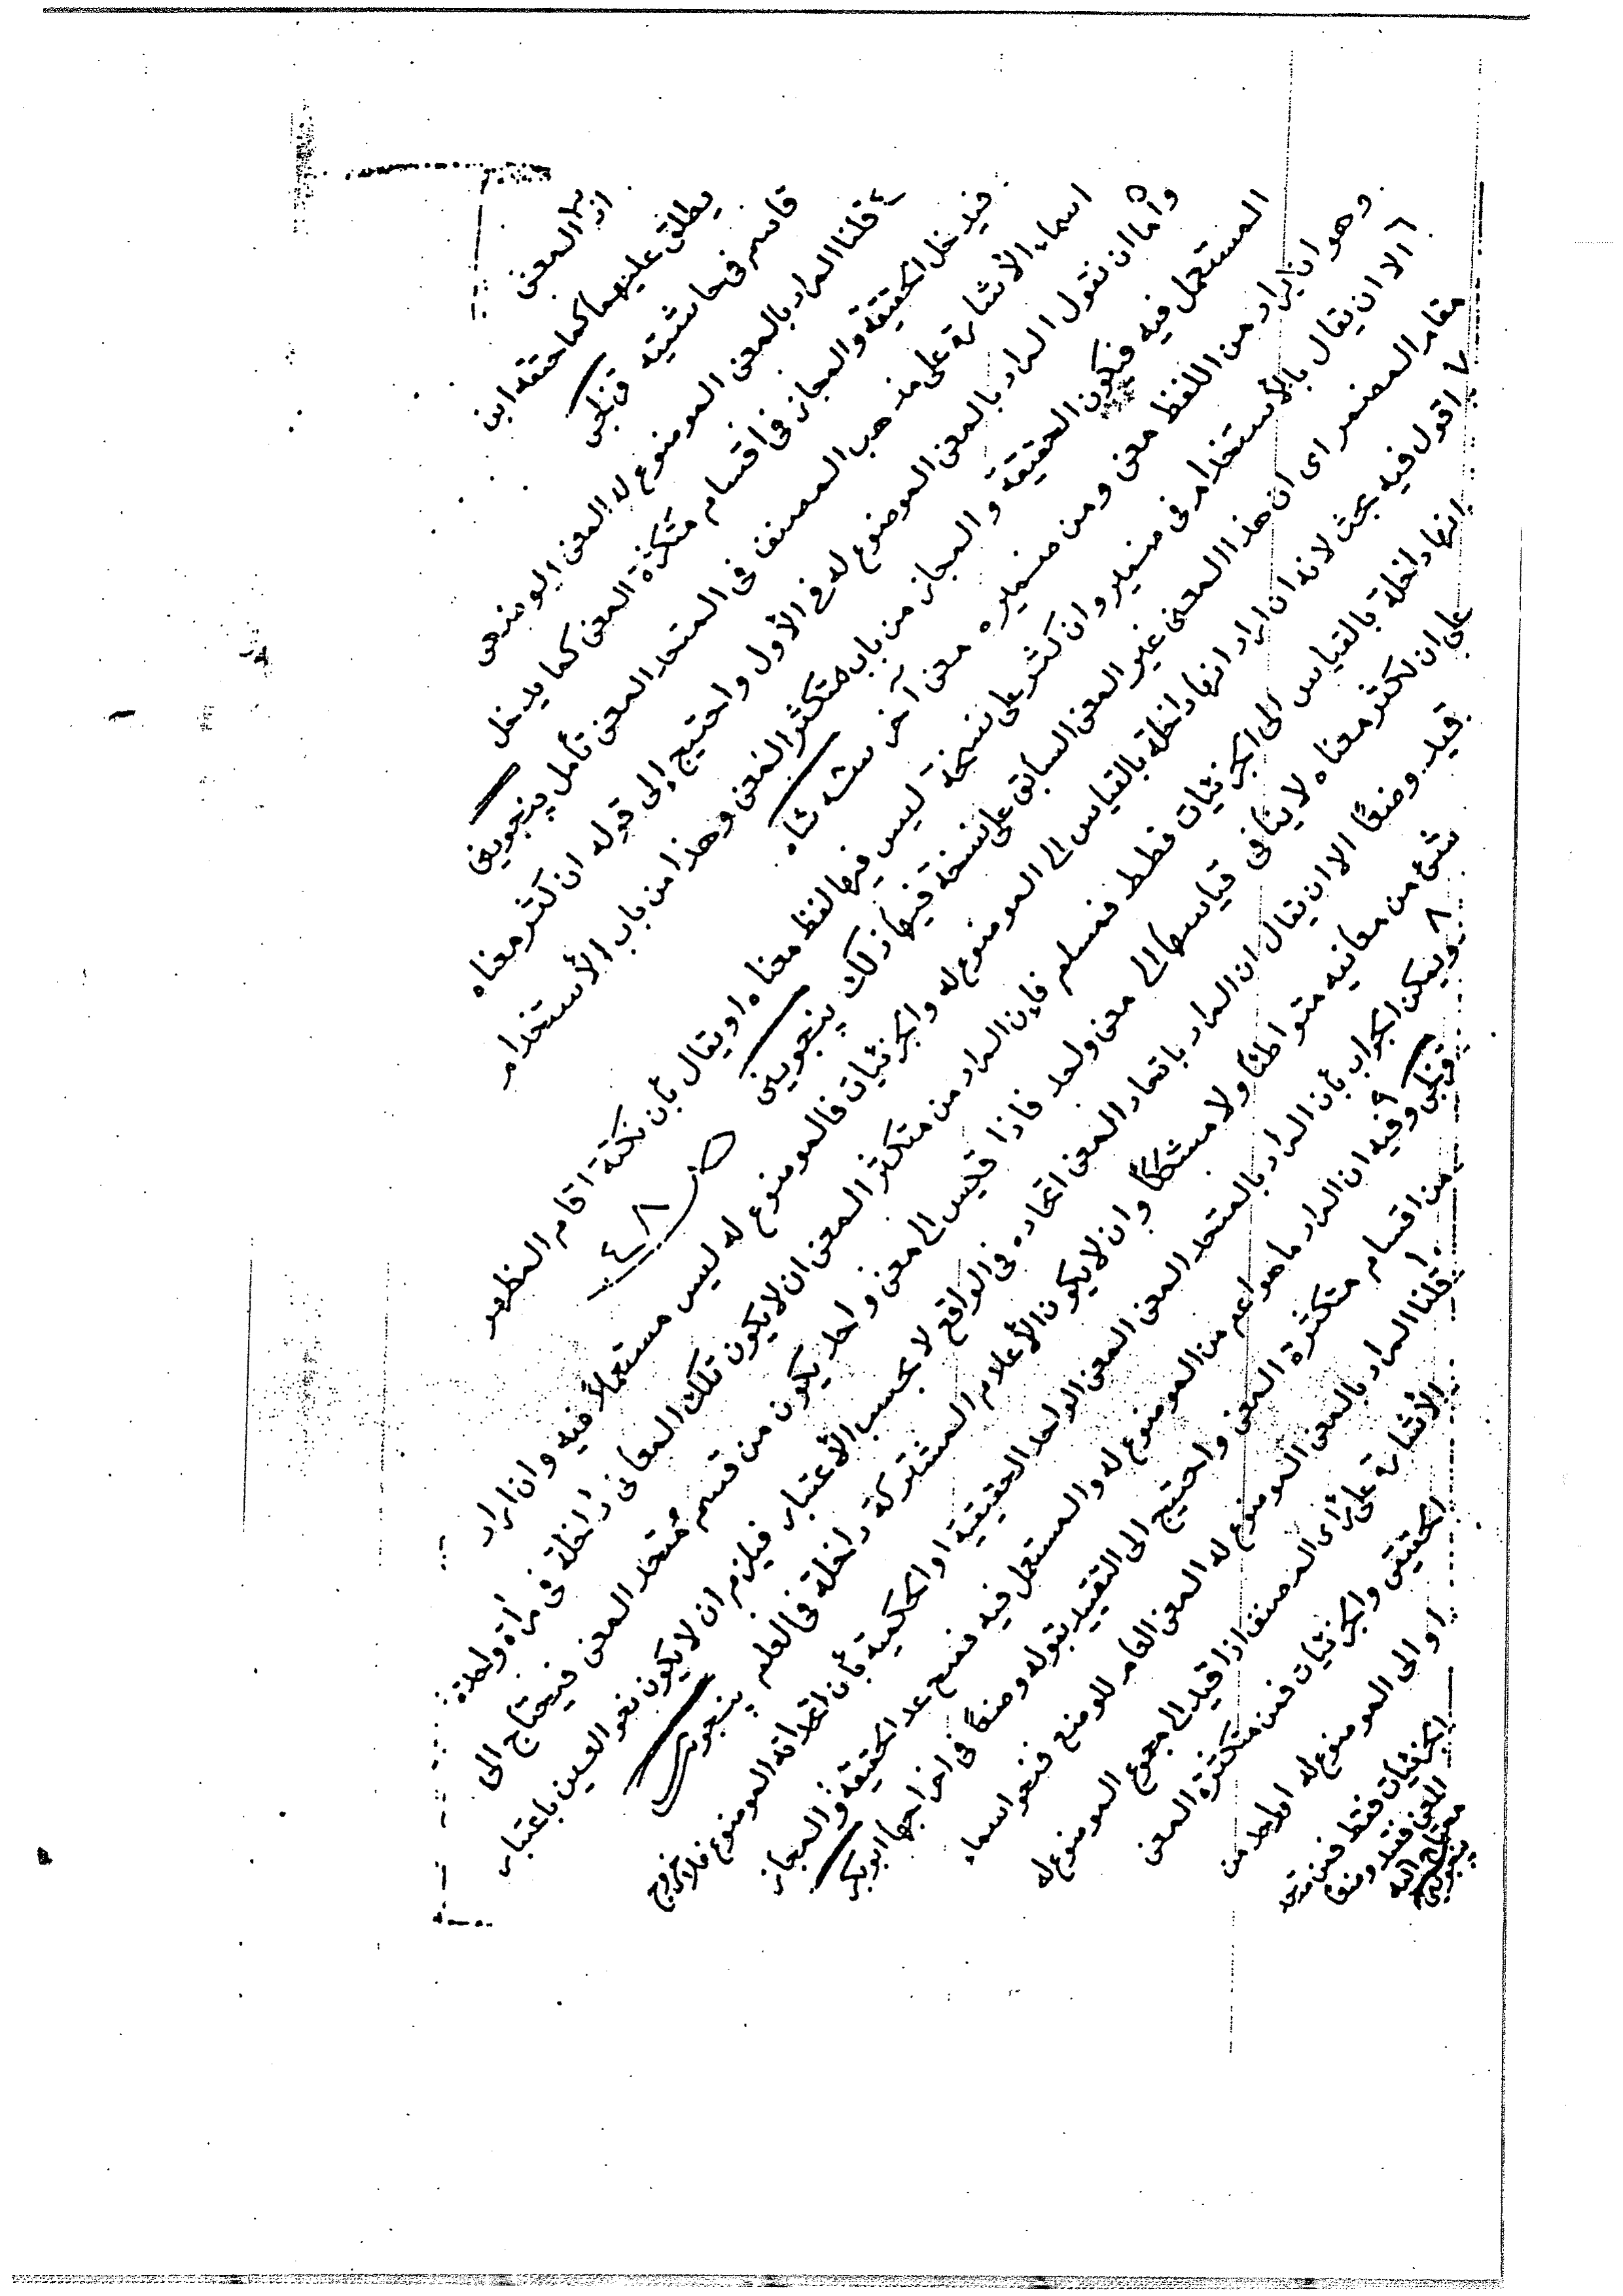 اذ المعنى
يطلق عليهما كما حققه ابن
قاسم فى حاشيته قزلجى
٤ قلنا المراد بالمعنى الموضوع له المعنى
فيدخل الحقيقة والمجاز فى اقسام متكثرة المعنى كما يدخل
اسماء الأشارة على مذهب المصنف فى المتحد المعنى تأمل پنجوينى
٥ وأما ان نقول المراد بالمعنى الموضوع له فى الأول واحتيج إلى قوله ان كثر معناه
المستعمل فيه فيكون الحقيقة والمجاز من باب متكثر المعنى وهذا من باب الأستخدام
وهو ان يراد من اللفظ معنى ومن ضميره معنى آخر
٦ الا ان يقال بالأستخدام فى ضمير وان كثر على نسخة ليس فيها لفظ معناه او يقال بأن نكتة اقام المظهر
مقام المضمر اى ان هذا المعنى غير المعنى السابق على نسخة فيها ذلك پنجوينى
ص ٤٨
٧ اقول فيه بحث لانه ان اراد انها داخلة بالقياس الى الموضوع له والجزئيات فالموضوع له ليس مستعملاً فيه وان اراد
انها داخلة بالقياس الى الجزئيات فقط فمسلم فإن المراد من متكثر المعنى ان لا يكون تلك المعانى داخلة فى مرأة واحدة
على ان تكثر معناه لا ينافى قياسها الى معنى واحد فاذا قيس الى معنى واحد يكون من قسم متحد المعنى فيحتاج الى
قيد وضعًا الا ان يقال ان المراد باتحاد المعنى اتحاده فى الواقع لا بحسب الأعتبار فيلزم ان لا يكون نحو العين باعتبار
شئ من معانيه متواطئًا ولا مشككًا وان لا يكون الأعلام المشتركة داخلة فى العلم پنجوينى
٨ ويمكن الجواب بأن المراد بالمتحد المعنى المعنى الواحد الحقيقية او الحكمية بأن الموضوع فلا خروج
قزلجى ٩ وفيه ان المراد ما هو اعم من الموضوع له والمستعمل فيه فصح عد الحقيقة والمجاز
من اقسام متكثرة المعنى واحتيج الى التقييد بقوله وضعًا فى اخراجها ابوبكر
١٠ قلنا المراد بالمعنى الموضوع له المعنى العام للوضع فنحو اسماء
الأشارة على رأى المصنف اذا قيد الى مجموع الموضوع له
الحقيقى والجزئيات فمن متكثرة المعنى
او الى الموضوع له او واحد من
الجزئيات فقط فمن متحد
المعنى فقيد وضعا
محتاج اليه
پنجوينى